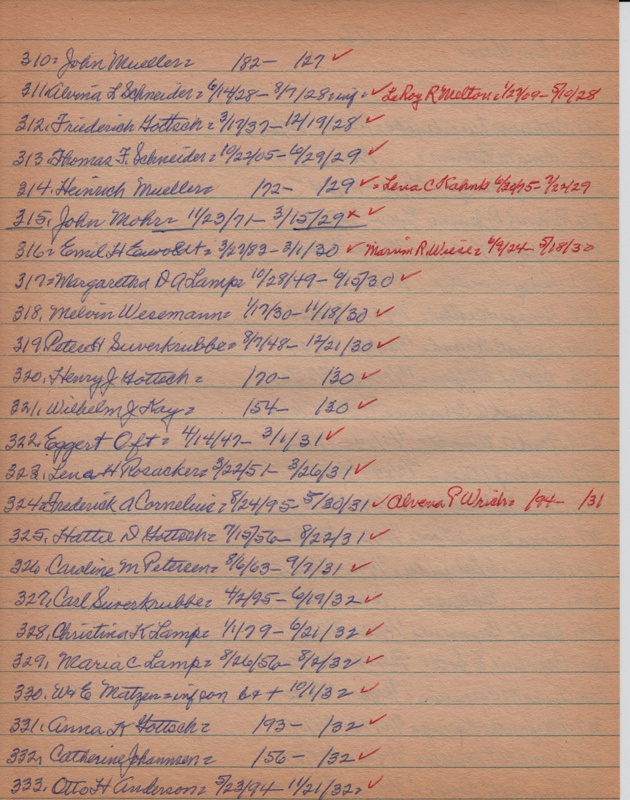 310= John Mueller= /82- /27 ✓
311. Alvina L Schneider= 6/14/28- 8/7/28= inf= ✓ LeRoy R Melton= 1/27/09- 5/10/28
312. Friederich Gottsch= 3/17/37- 12/19/28 ✓
313. Thomas F. Schneider= 10/22/05- 6/29/29 ✓
314. Heinrich Mueller= /72- /29 ✓= Lena C Kahnk 6/20/75- 7/22/29
315. John Mohr= 11/23/71- 3/15/29x ✓
316= Emil H Ewoldt= 3/27/83- 3/1/30 ✓ Marvin R. Wiese= 6/9/24- 5/18/30
317= Margaretha D A Lamp= 10/28/49- 9/15/30 ✓
318. Melvin Wesemann= 1/17/30- 11/18/30 ✓
319. Peter H Suverkrubbe= 8/7/48- 12/21/30 ✓
320. Henry J Gottsch= /70- /30 ✓
321. Wilhelm J Kay= /54- /30 ✓
322. Eggert Oft= 4/14/47- 3/1/31 ✓
323. Lena H Rosacker= 3/22/51- 3/26/31 ✓
324= Frederick A Cornelius= 8/24/95- 5/30/31 ✓ Alvena P Wrich= /94- /31
325. Hattie D Gottsch= 7/15/56- 8/22/31 ✓
326. Caroline M Petersen= 8/6/63- 9/7/31 ✓
327. Carl Suverkrubbe= 4/2/95- 6/19/32 ✓
328. Christina K Lamp= 1/1/79- 6/21/32 ✓
329. Maria C Lamp= 8/26/56- 8/2/32 ✓
330. W+E Matzen= inf son b+ + 10/1/32 ✓
331. Anna K Gottsch= /93- /32 ✓
332. Catherine Johannsen= /56- /32 ✓
333. Otto H Anderson= 5/23/94- 11/21/32= ✓